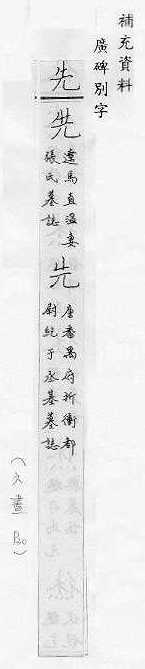 補充資料
廣碑別字
先
先
達馬直溫妻
張氏墓誌
先
唐番禺府折衝都
尉紇于丞基墓誌
(六畫 B0)